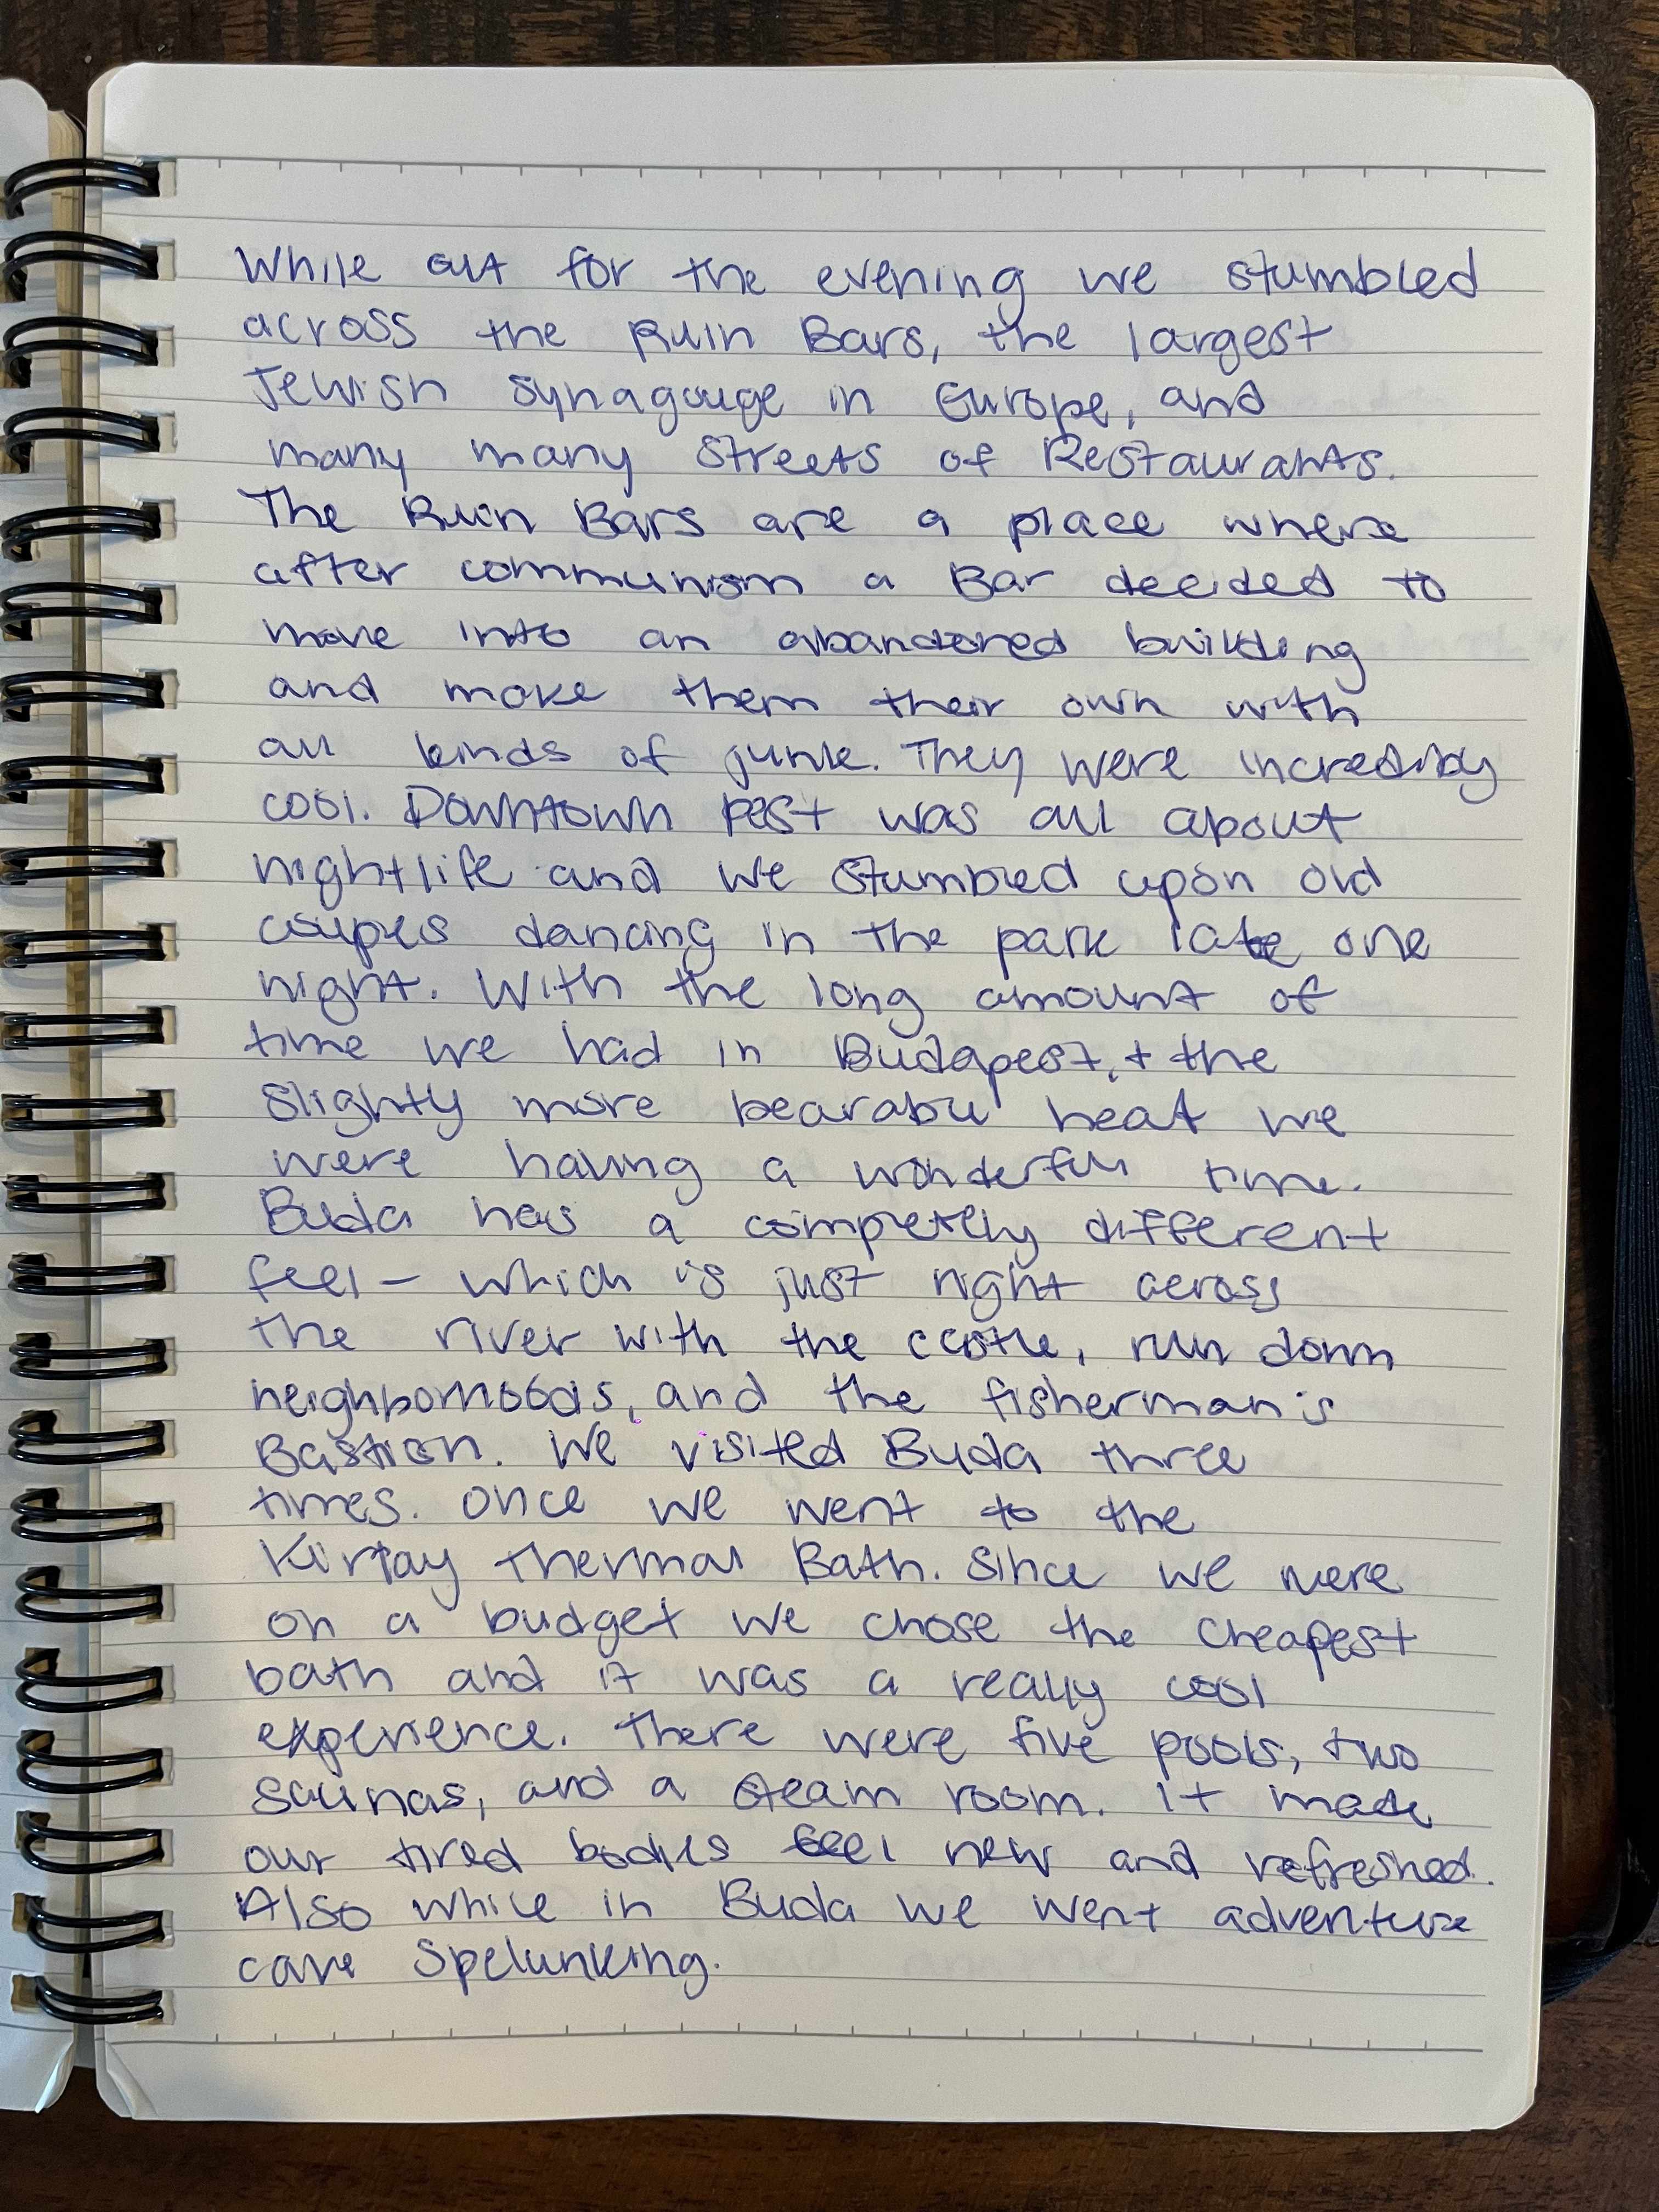 While out for the evening we stumbled
across the Ruin Bars, the largest
Jewish synagouge in Europe, and
many many streets of Restaurants.
The Ruin Bars are a place where
after communism a Bar decided to
move into an abandoned building
and make them their own with
all kinds of junk. They were incredibly
cool. Downtown Pest was all about
nightlife and we stumbled upon old
couples dancing in the park late one
night. With the long amount of
time we had in Budapest, + the
slightly more bearable heat we
were having a wonderful time.
Buda has a completely different
feel - which is just right across
the river with the castle, run down
neighborhoods, and the fisherman's
Bastion. We visited Buda three
times. Once we went to the
Thermal Bath. Since we were
on a budget we chose the cheapest
bath and it was a really cool
experience. There were five pools, two
saunas, and a steam room. It made
our tired bodies feel new and refreshed.
Also while in Buda we went adventure
cave Spelunking.